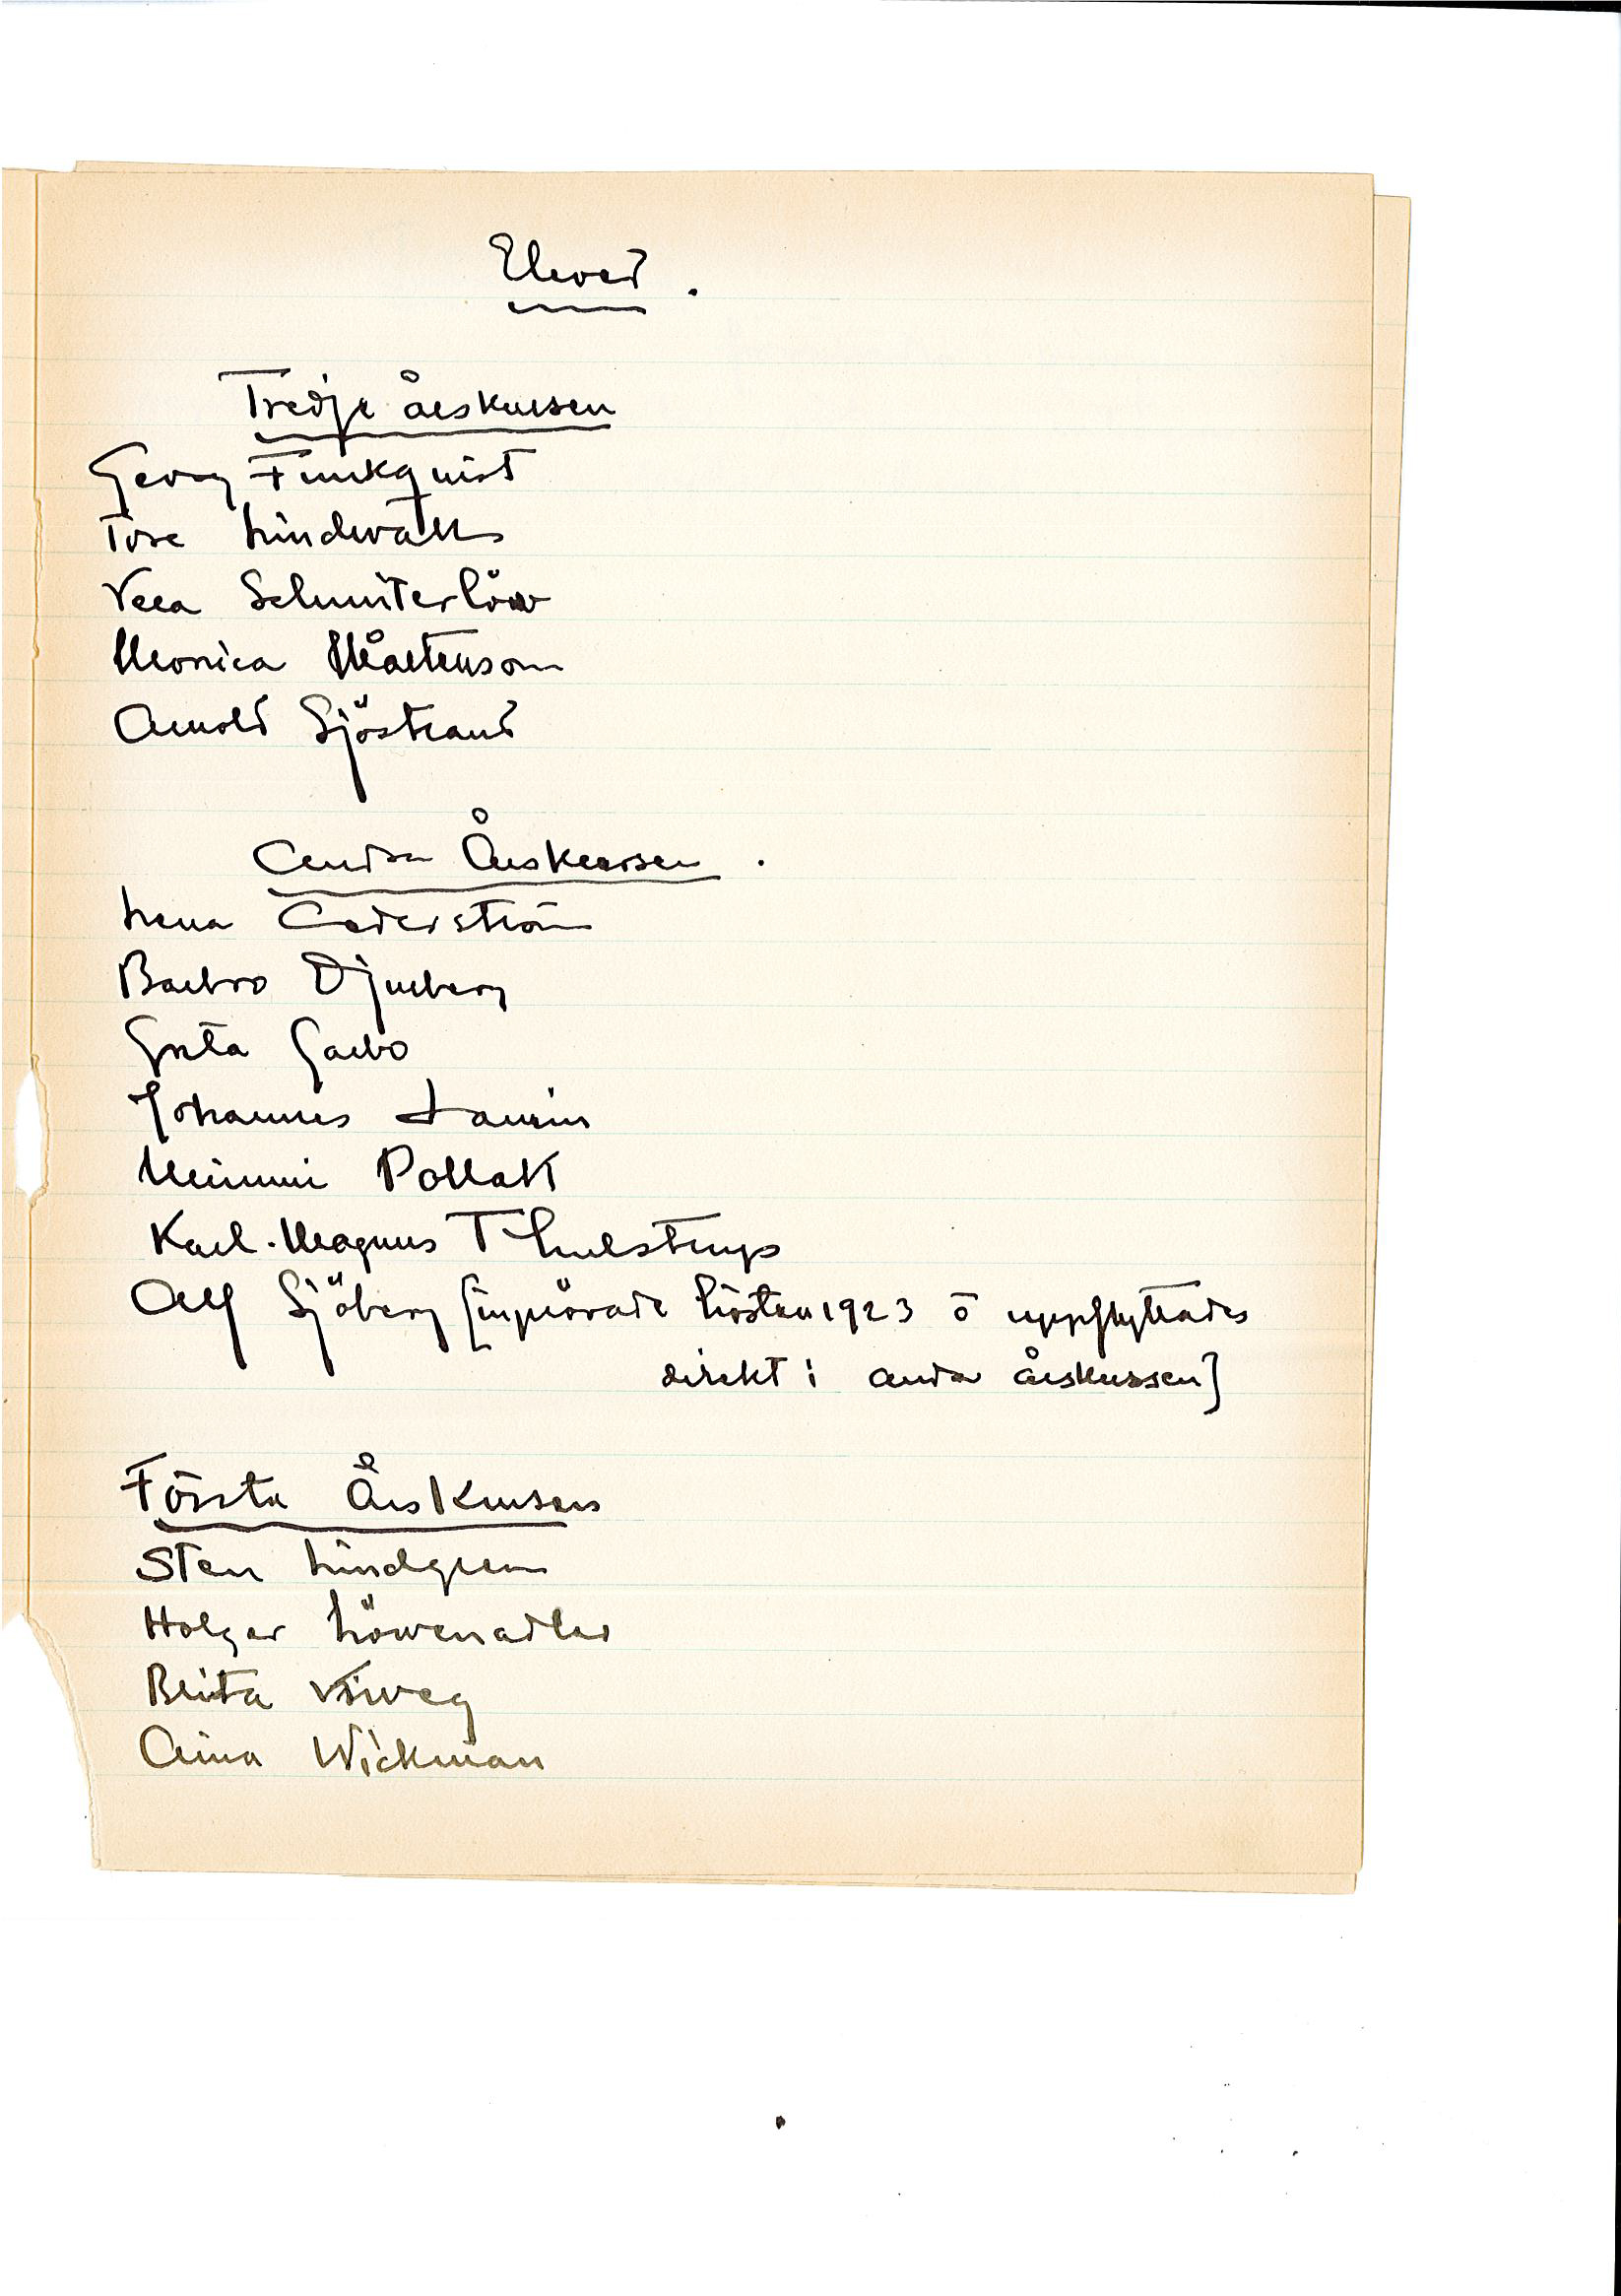 Elever.
Tredje årskursen
Georg Funkquist
Tore Lindwall
Vera Schmiterlöw
Monica Mårtenson
Arnold Sjöstrand
Andra Årskursen.
Lena Cederström
Barbro Djurberg
Greta Garbo
Johannes Laurin
Mimmi Pollak
Karl-Magnus Thulstrup
Alf Sjöberg [inprövade hösten 1923 o uppflyttades
direkt i andra årskursen]
Första Årskursen
Sten Lindgren
Holger Löwenadler
Brita Viweg
Aina Wickman